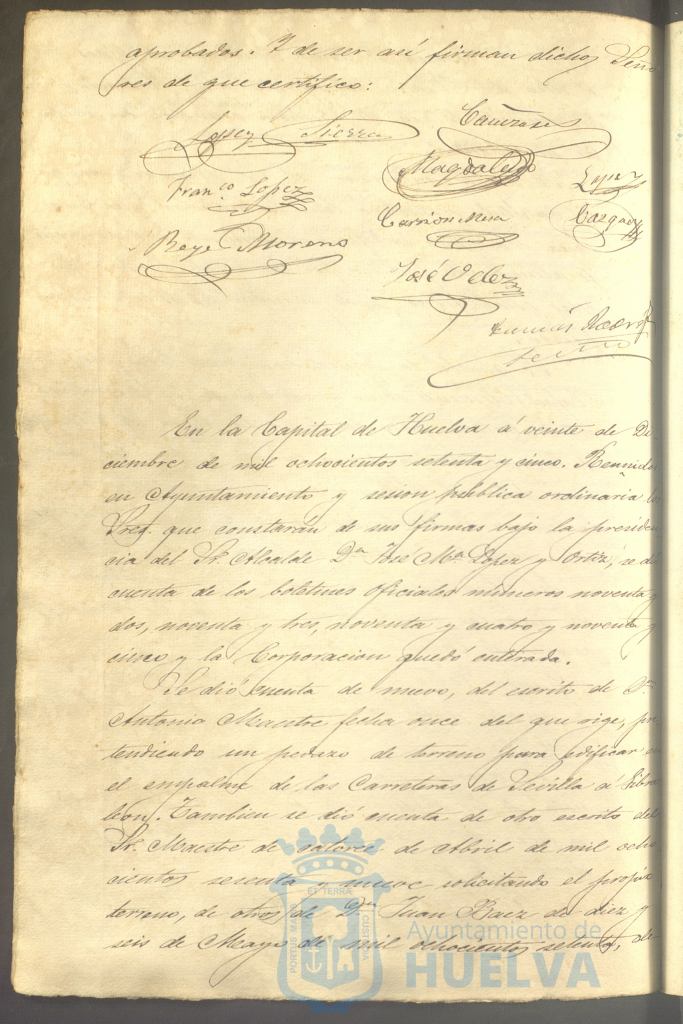 aprobados. Y de ser asi firman dichos Seño
res de que certifico:
Lopez Sierra
Cañizares
Magdaleno
Lopez
Franco Lopez
Carrion Mesa
Vazquez
Reye Moreno
José Velez
En la Capital de Huelva á veinte de Di
ciembre de mil ochocientos setenta y cinco. Reunidos
en Ayuntamiento y sesion publica ordinaria los
Sres. que constarán de sus firmas bajo la presiden
cia del Sr. Alcalde Dn José Ma Lopez y Ortiz, se dió
cuenta de los boletines oficiales números noventa y
dos, noventa y tres, noventa y cuatro y noventa y
cinco y la Corporacion quedó enterada.
Se dió cuenta de nuevo, del escrito de Dn
Antonio Maestre fecha once del que rige, pre
tendiendo un pedazo de terreno para edificar en
el empalme de las Carreteras de Sevilla á Gibra
leon. Tambien se dió cuenta de otro escrito del
Sr. Maestre de catorce de Abril de mil ocho
cientos sesenta y nueve solicitando el propio
terreno, de otros de Dn Juan Baez de diez y
seis de Mayo de mil ochocientos setenta, de
PORTUS MARIS ET TERRAE CUSTODIA
Ayuntamiento de
HUELVA